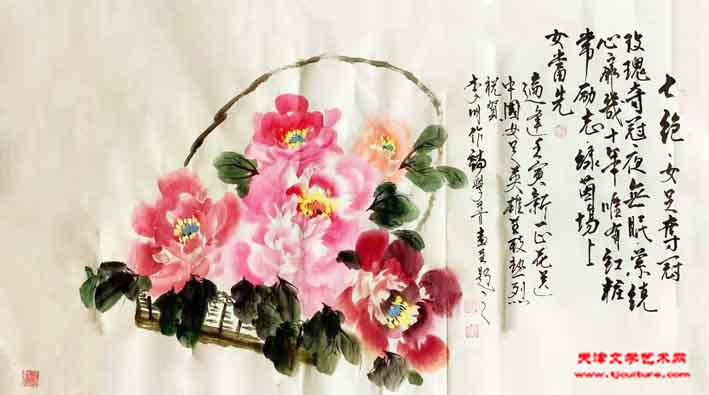 七绝·女足夺冠
玫瑰夺冠夜无眠萦绕
心扉几十年唯有红妆
常励志绿茵场上
女当先
适逢壬寅新正花送
中国女足英雄至致热烈
祝贺
李明作
天津文学艺术网
www.tjculture.com